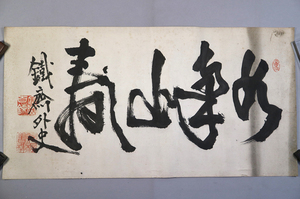 如南山壽
鐵齋外史